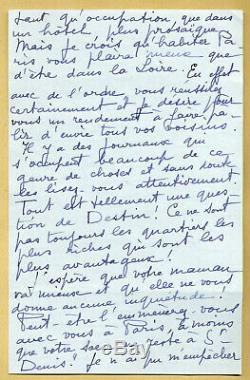 tant qu'occupation que dans
un hôtel, plus prosaïque.
Mais je crois qu'habiter Pa-
ris vous plaira mieux que
d'être dans la Loire. En effet
avec de l'ordre, vous réussirez
certainement et je désire pour
vous un rendement à faire pâ-
lir d'envie tous vos voisins.
Il y a des journaux qui
s'occupent beaucoup de ce
genre de choses et sans doute
les lisez-vous attentivement.
Tout est tellement une ques-
tion de Destin! Ce ne sont
pas toujours les quartiers les
plus riches qui sont les
plus avantageux!
J'espère que votre maman
va mieux et qu'elle ne vous
donne aucune inquiétude.
Peut-être l'emmenerez-vous
avec vous à Paris, à moins
que votre sœur ne reste à St
Denis. Je n'ai pu m'empêcher